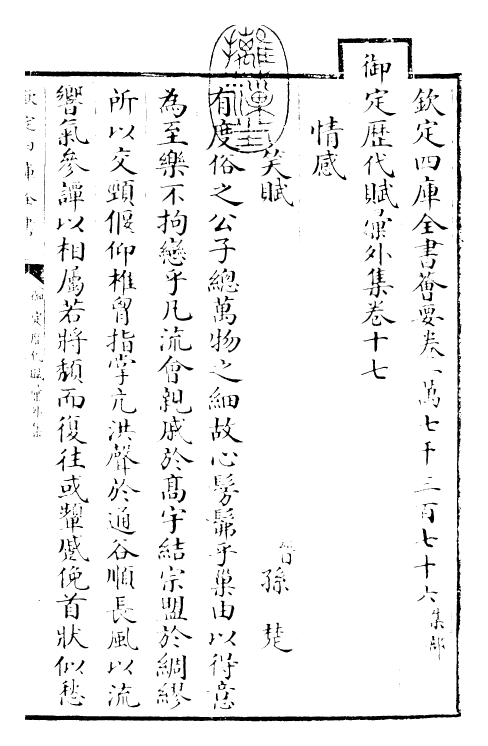 欽定四庫全書薈要卷一萬七千三百七十六集部
御定歴代賦彙外集卷十七
情感
笑賦
晉孫楚
有度俗之公子總萬物之細故心髣髴乎巢由以得意
為至樂不拘戀乎凡流會親戚於髙宇結宗盟於綢繆
所以交頸偃仰椎胷指掌亢洪聲於通谷順長風以流
響氣參譚以相屬若將頽而復往或顰蹙俛首狀似愁
欽定四庫全書
御定歴代賦彙外集